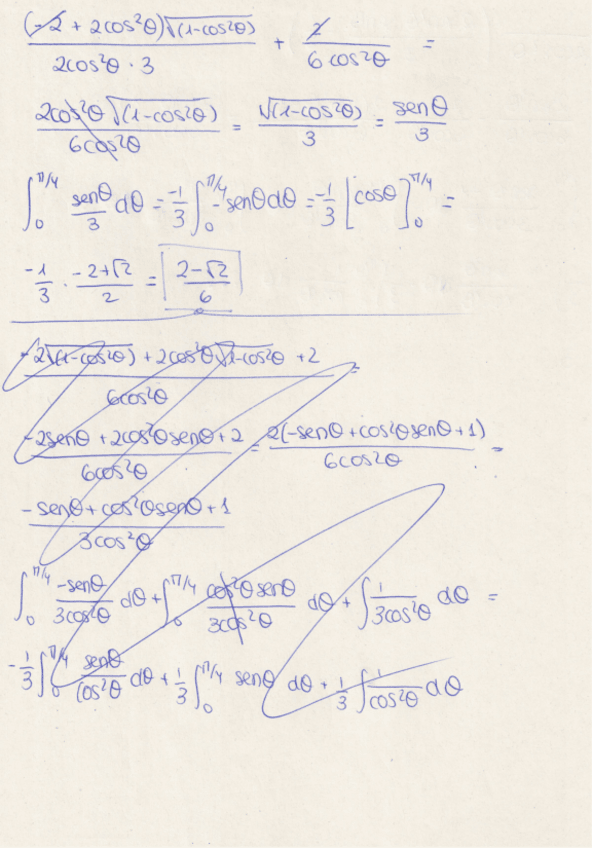 (-2 + 2cos²θ)√(1-cos²θ) / 2cos²θ · 3 + 2 / 6cos²θ =
2cos²θ √(1-cos²θ) / 6cos²θ = √(1-cos²θ) / 3 = senθ / 3
∫₀^π/4 senθ/3 dθ = -1/3 ∫₀^π/4 -senθdθ = -1/3 [cosθ]₀^π/4 =
-1/3 · -2+√2 / 2 = 2-√2 / 6
-2√(1-cos²θ) + 2cos²θ√1-cos²θ +2 / 6cos²θ =
-2senθ + 2cos²θsenθ + 2 / 6cos²θ = 2(-senθ + cos²θsenθ + 1) / 6cos²θ =
-senθ + cos²θsenθ + 1 / 3cos²θ
∫₀^π/4 -senθ / 3cos²θ dθ + ∫₀^π/4 cos²θ senθ / 3cos²θ dθ + ∫ 1 / 3cos²θ dθ =
-1/3 ∫₀^π/4 senθ / cos²θ dθ + 1/3 ∫₀^π/4 senθ dθ + 1/3 ∫ 1 / cos²θ dθ